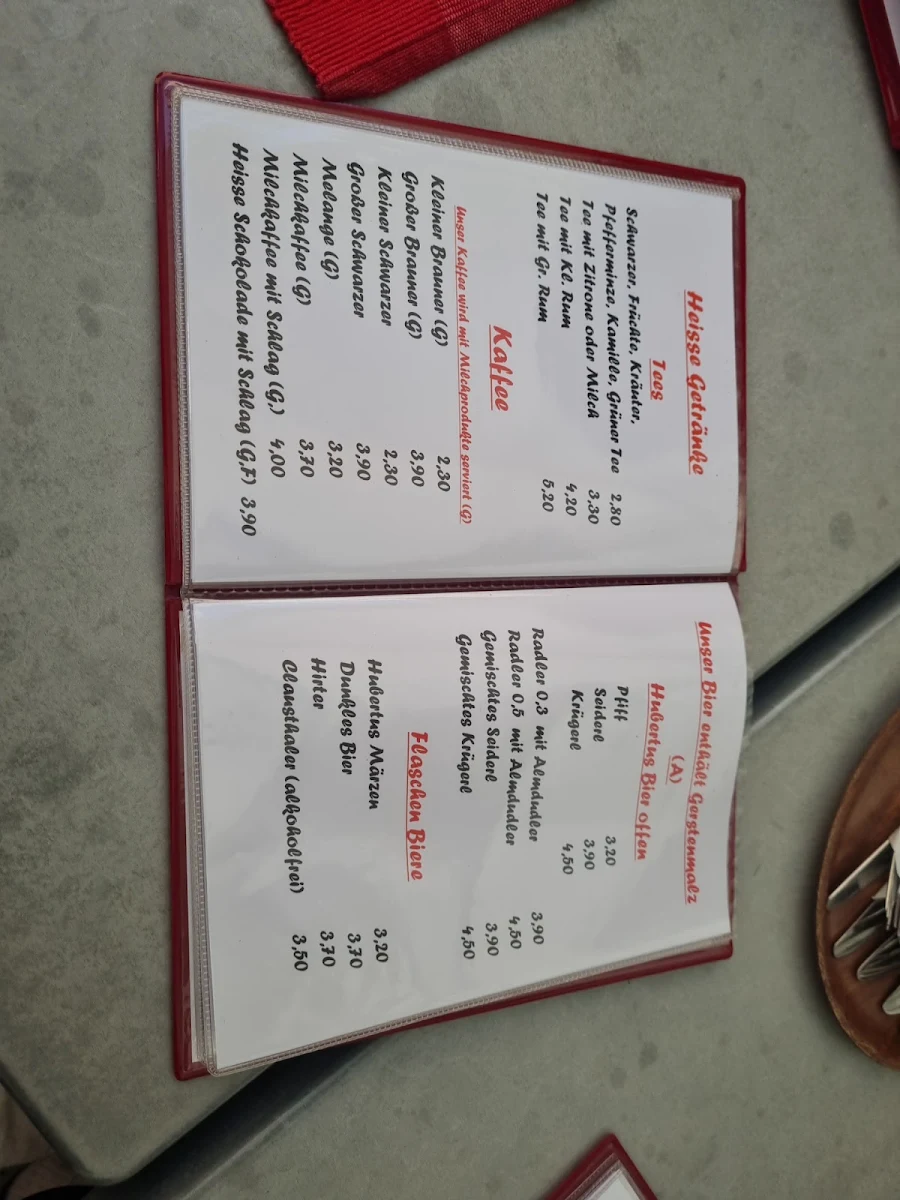 Heisse Getränke
Tees
Schwarzer, Früchte, Kräuter,
Pfefferminze, Kamille, Grüner Tee 2,80
Tee mit Zitrone oder Milch 3,30
Tee mit Kl. Rum 4,20
Tee mit Gr. Rum 5,20
Kaffee
Unser Kaffee wird mit Milchprodukte serviert (G)
Kleiner Brauner (G) 2,30
Großer Brauner (G) 3,90
Kleiner Schwarzer 2,30
Großer Schwarzer 3,90
Melange (G) 3,20
Milchkaffee (G) 3,70
Milchkaffee mit Schlag (G,) 4,00
Heisse Schokolade mit Schlag (G,F) 3,90
Unser Bier enthält Gerstenmalz
(A)
Hubertus Bier offen
Pfiff 3,20
Seiderl 3,90
Krügerl 4,50
Radler 0,3 mit Almdudler 3,90
Radler 0,5 mit Almdudler 4,50
Gemischtes Seiderl 3,90
Gemischtes Krügerl 4,50
Flaschen Biere
Hubertus Märzen 3,20
Dunkles Bier 3,70
Hirter 3,70
Clausthaler (alkoholfrei) 3,50